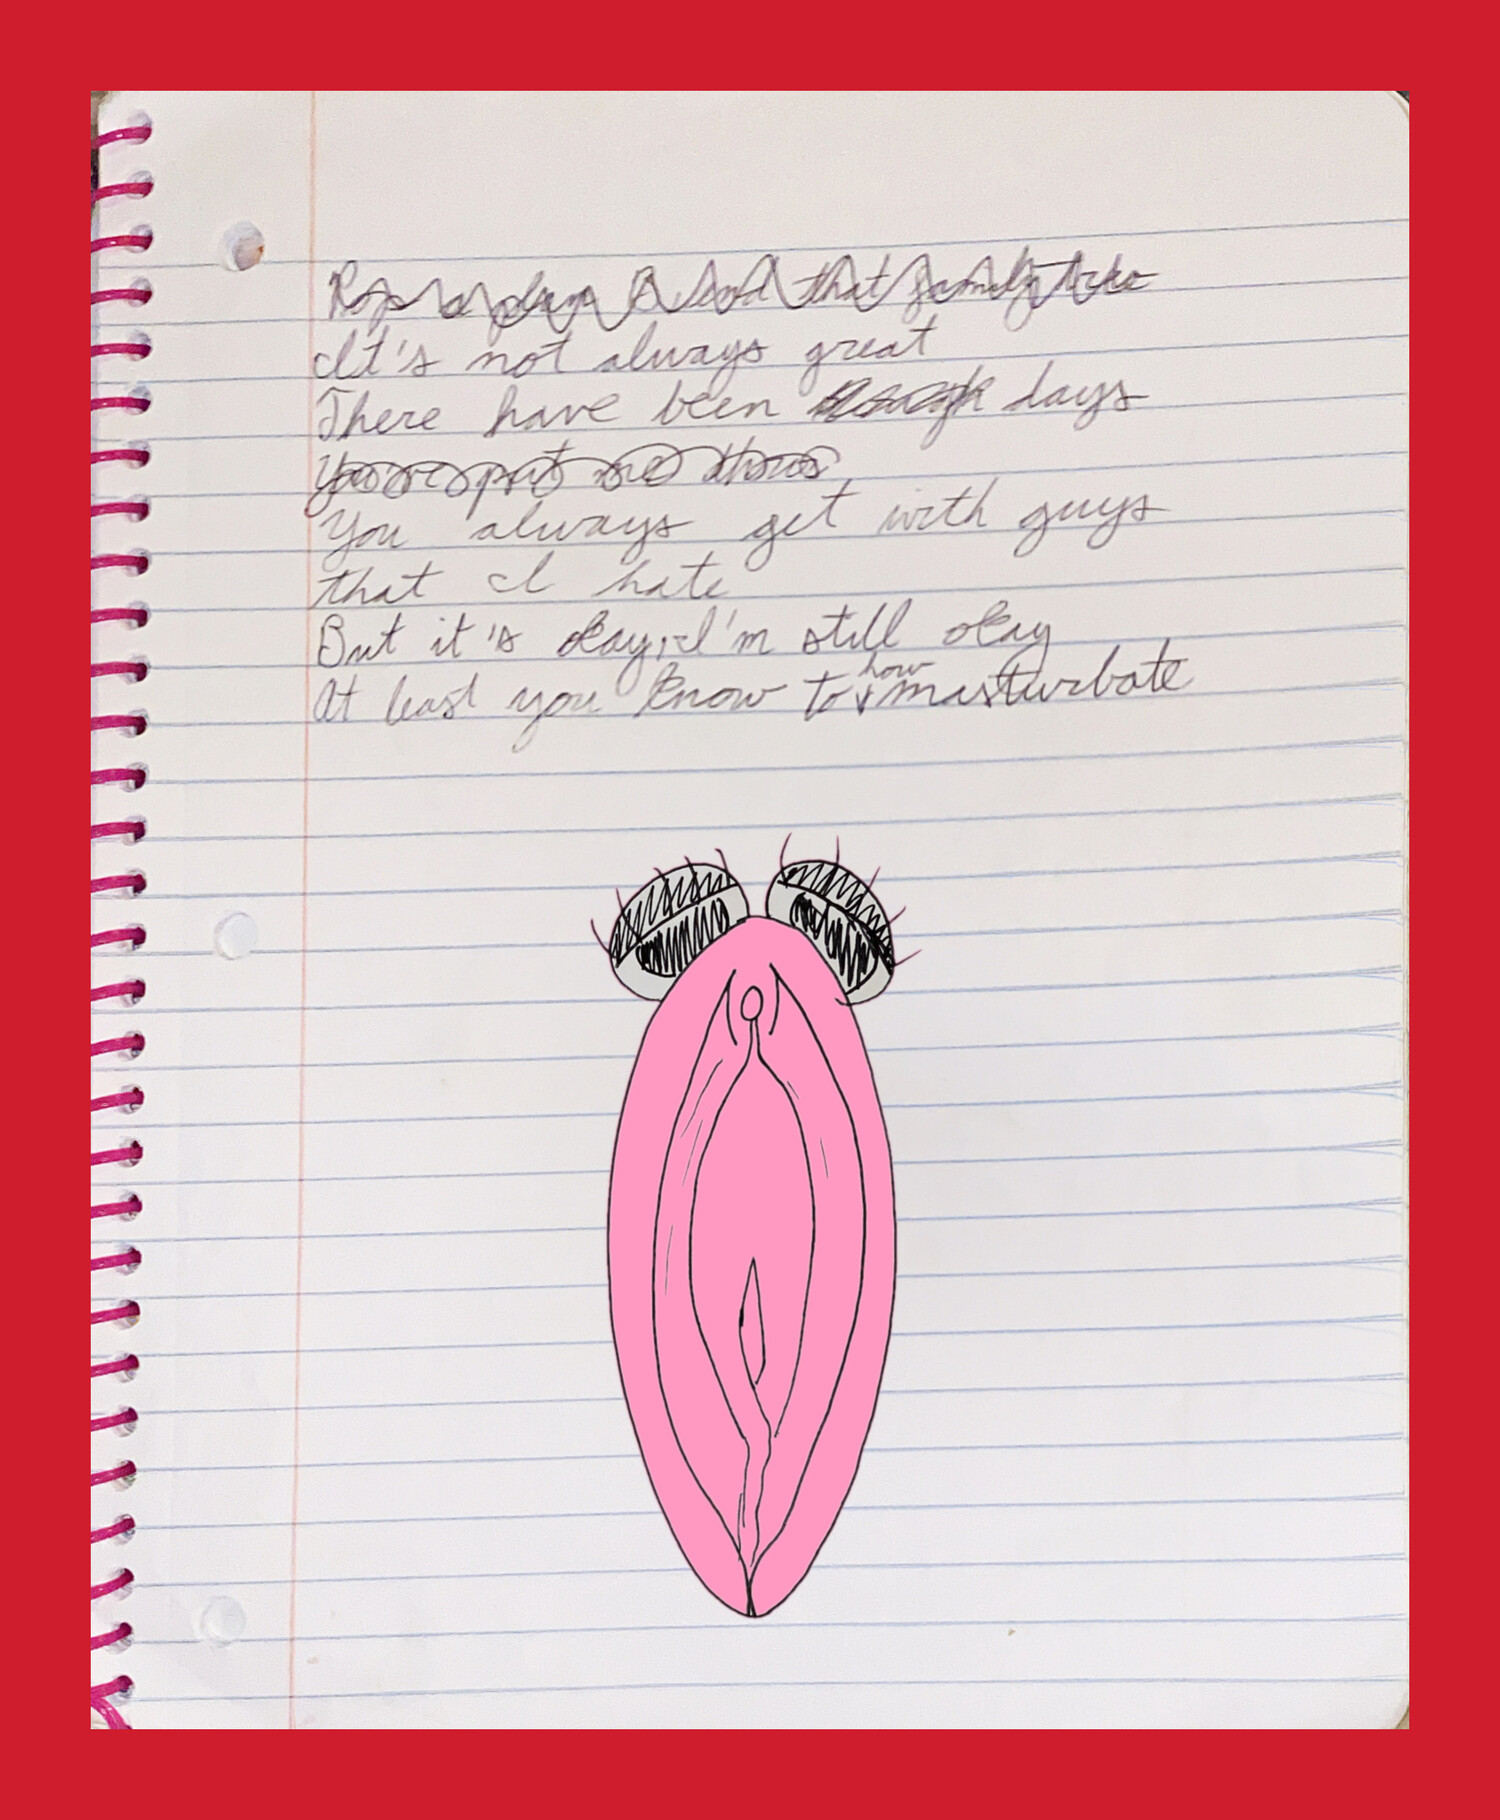 It's not always great
There have been days
You always get with guys
that I hate
But it's okay, I'm still okay
At least you know to how masturbate